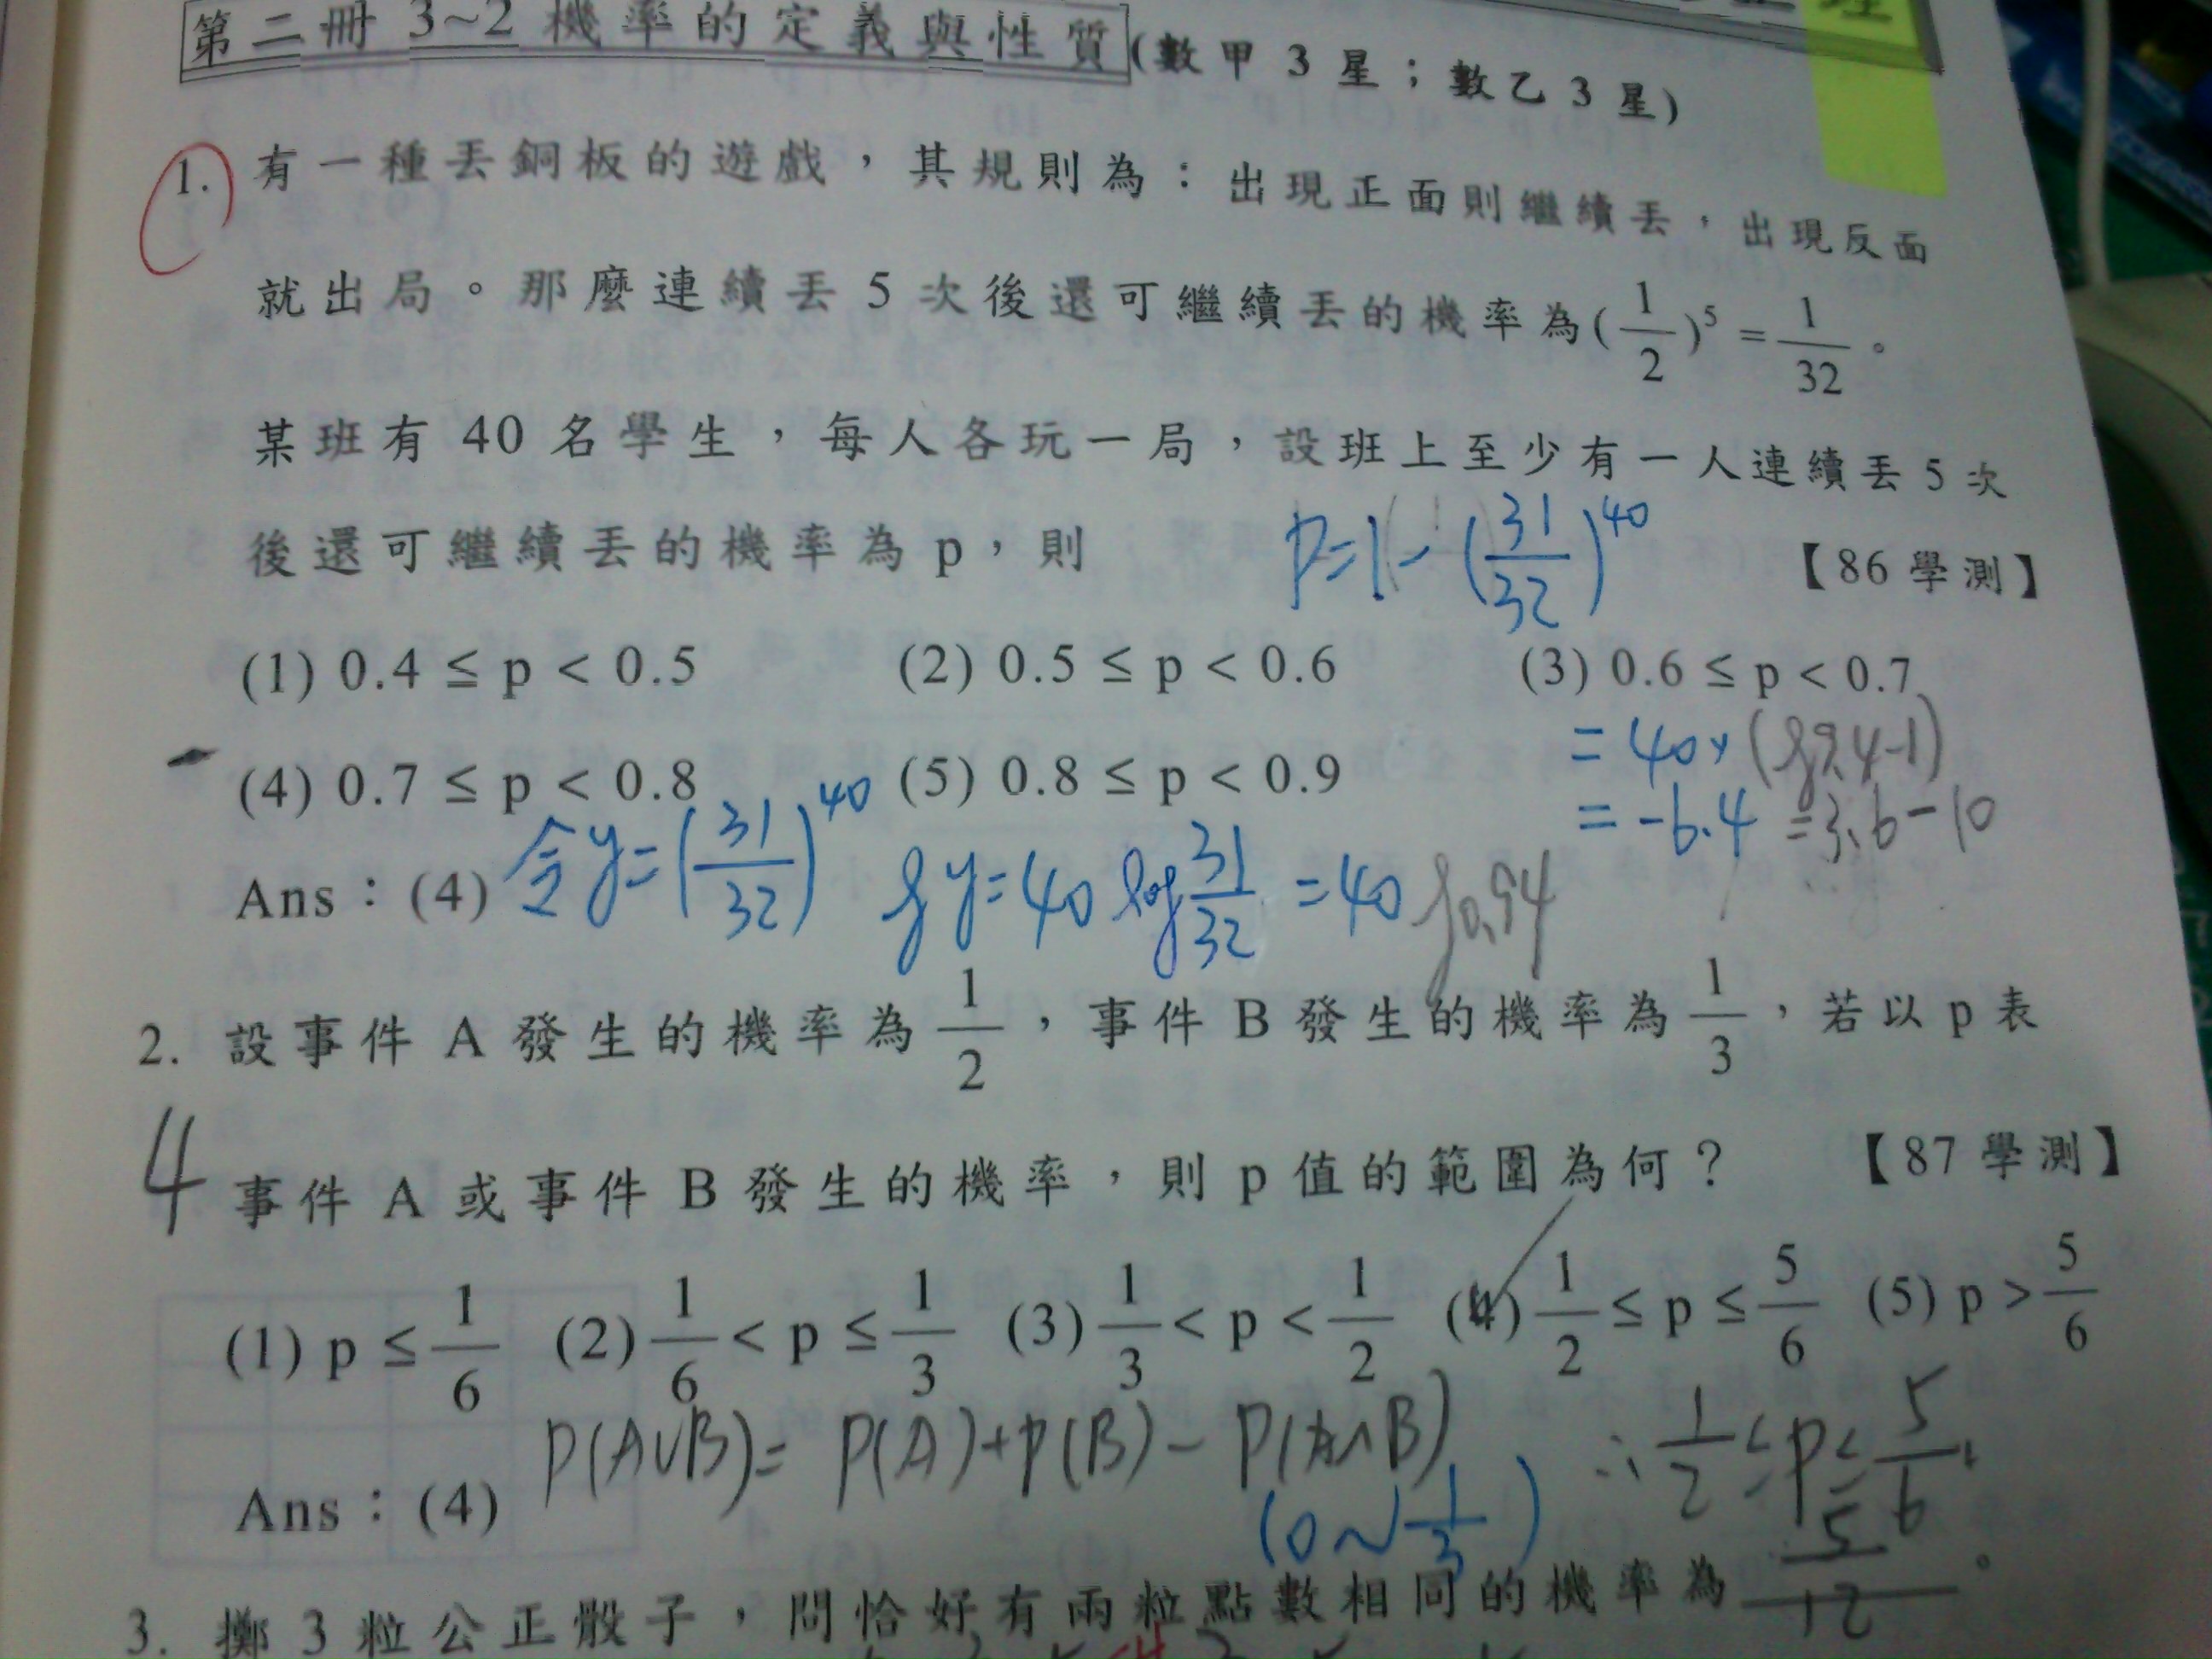 第二冊 3~2 機率的定義與性質(數甲3星；數乙3星)
1. 有一種丟銅板的遊戲，其規則為：出現正面則繼續丟，出現反面
就出局。那麼連續丟5次後還可繼續丟的機率為(1/2)^5 = 1/32。
某班有40名學生，每人各玩一局，設班上至少有一人連續丟5次
後還可繼續丟的機率為p，則 【86學測】
P=1-(31/32)^40
(1) 0.4 ≤ p < 0.5 (2) 0.5 ≤ p < 0.6 (3) 0.6 ≤ p < 0.7
(4) 0.7 ≤ p < 0.8 (5) 0.8 ≤ p < 0.9
= 40×(log9.4-1)
= -6.4 =3.6-10
Ans：(4) 令y=(31/32)^40 log y=40 log 31/32 =40 log0.94
2. 設事件A發生的機率為1/2，事件B發生的機率為1/3，若以p表
4
事件A或事件B發生的機率，則p值的範圍為何？ 【87學測】
(1) p ≤ 1/6 (2) 1/6 < p ≤ 1/3 (3) 1/3 < p < 1/2 (4) 1/2 ≤ p ≤ 5/6 (5) p > 5/6
P(A∪B)= P(A)+P(B)-P(A∩B) ∴ 1/2 ≤ P ≤ 5/6
Ans：(4)
(0~1/3)
3. 擲3粒公正骰子，問恰好有兩粒點數相同的機率為 5/12 。